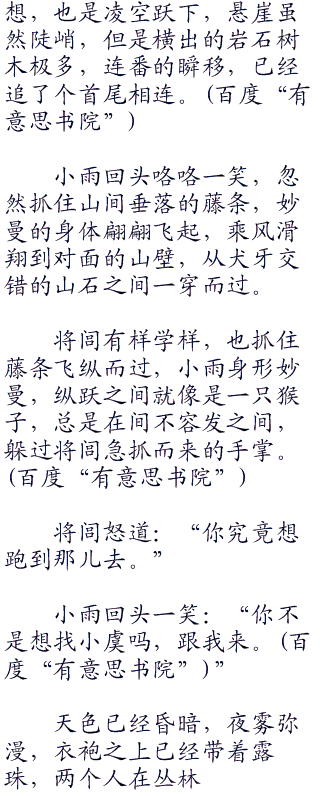 想，也是凌空跃下，悬崖虽
然陡峭，但是横出的岩石树
木极多，连番的瞬移，已经
追了个首尾相连。(百度“有
意思书院”)
小雨回头咯咯一笑，忽
然抓住山间垂落的藤条，妙
曼的身体翩翩飞起，乘风滑
翔到对面的山壁，从犬牙交
错的山石之间一穿而过。
将闾有样学样，也抓住
藤条飞纵而过，小雨身形妙
曼，纵跃之间就像是一只猴
子，总是在间不容发之间，
躲过将闾急抓而来的手掌。
(百度“有意思书院”)
将闾怒道：“你究竟想
跑到那儿去。”
小雨回头一笑：“你不
是想找小虞吗，跟我来。(百
度“有意思书院”)”
天色已经昏暗，夜雾弥
漫，衣袍之上已经带着露
珠，两个人在丛林